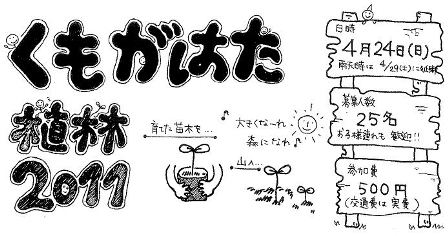 くもがはた
植林
2011
育てた苗木を…
大きくな〜れ
森になれ
山へ…
日時
4月24日(日)
雨天時は 4/29(土)に延期
募集人数
25名
お子様連れも 歓迎!!
参加費
500円
(交通費は 実費)